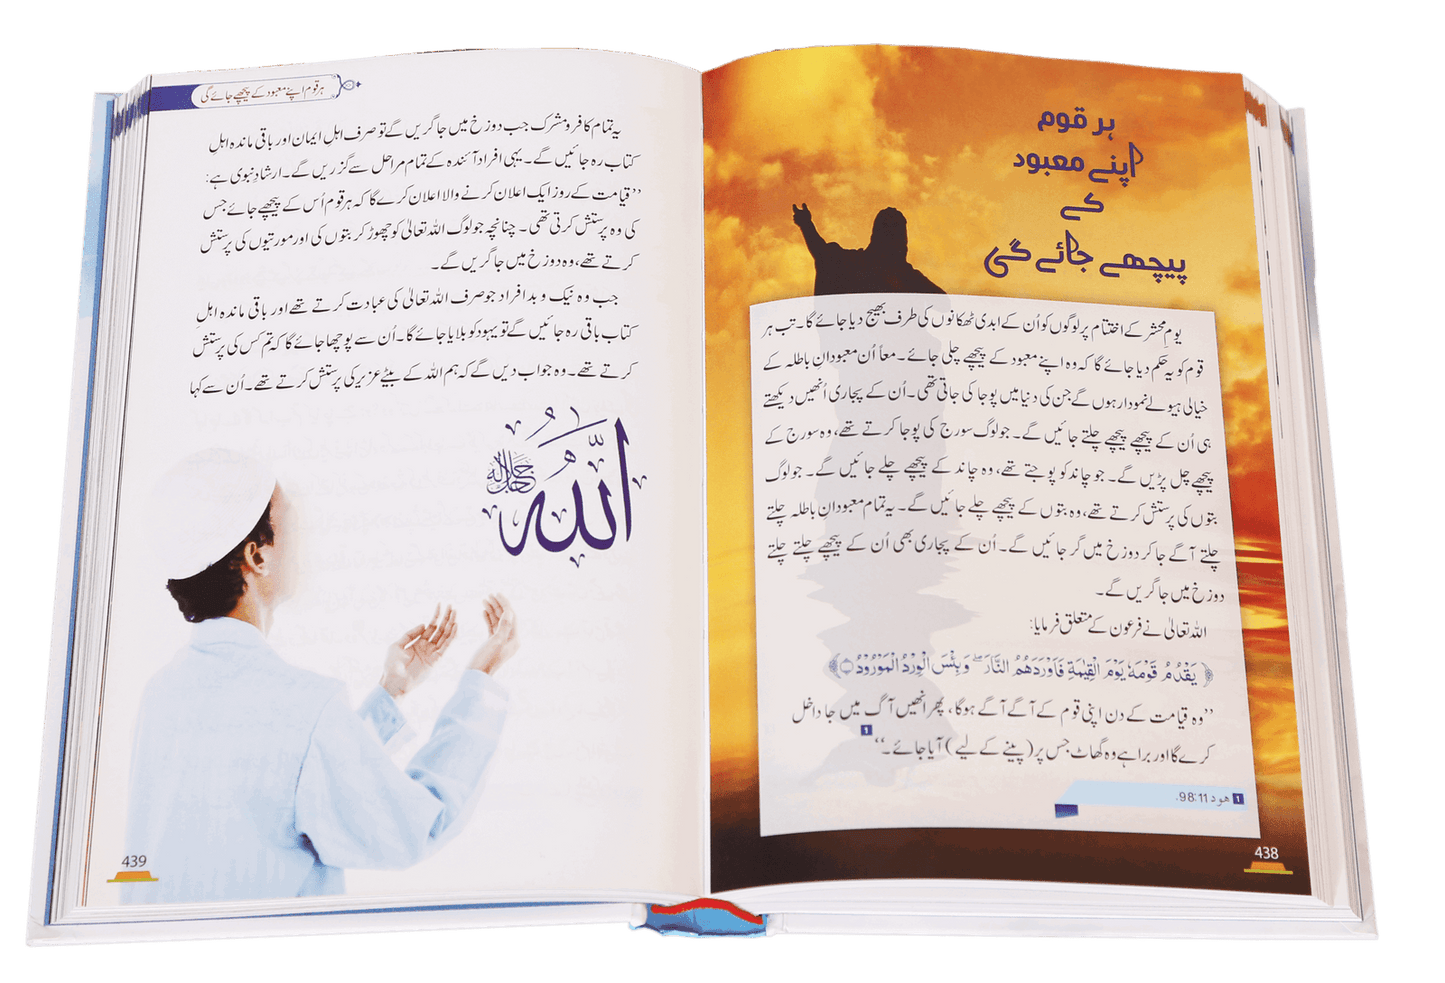 ہر قوم
اپنے معبود
کے
پیچھے جائے گی
یومِ محشر کے اختتام پر لوگوں کو اُن کے ابدی ٹھکانوں کی طرف بھیج دیا جائے گا۔ تب ہر
قوم کو یہ حکم دیا جائے گا کہ وہ اپنے معبود کے پیچھے چلی جائے۔ معاً اُن معبودانِ باطلہ کے
خیالی ہیولے نمودار ہوں گے جن کی دنیا میں پوجا کی جاتی تھی۔ اُن کے پجاری اُنھیں دیکھتے
ہی اُن کے پیچھے پیچھے چلتے جائیں گے۔ جو لوگ سورج کی پوجا کرتے تھے، وہ سورج کے
پیچھے چل پڑیں گے۔ جو چاند کو پوجتے تھے، وہ چاند کے پیچھے چلے جائیں گے۔ جو لوگ
بتوں کی پرستش کرتے تھے، وہ بتوں کے پیچھے چلے جائیں گے۔ یہ تمام معبودانِ باطلہ چلتے
چلتے آگے جا کر دوزخ میں گر جائیں گے۔ اُن کے پجاری بھی اُن کے پیچھے چلتے چلتے
دوزخ میں جا گریں گے۔
اللہ تعالیٰ نے فرعون کے متعلق فرمایا:
﴿ يَقْدُمُ قَوْمَهٗ يَوْمَ الْقِيٰمَةِ فَاَوْرَدَهُمُ النَّارَ ۖ وَبِئْسَ الْوِرْدُ الْمَوْرُوْدُ ۝ ﴾
’’وہ قیامت کے دن اپنی قوم کے آگے آگے ہوگا، پھر انھیں آگ میں جا داخل
کرے گا اور برا ہے وہ گھاٹ جس پر (پینے کے لیے) آیا جائے۔‘‘ 1
1 ھود 98:11.
438
ہر قوم اپنے معبود کے پیچھے جائے گی
یہ تمام کافر و مشرک جب دوزخ میں جا گریں گے تو صرف اہلِ ایمان اور باقی ماندہ اہلِ
کتاب رہ جائیں گے۔ یہی افراد آئندہ کے تمام مراحل سے گزریں گے۔ ارشادِ نبوی ہے:
’’قیامت کے روز ایک اعلان کرنے والا اعلان کرے گا کہ ہر قوم اُس کے پیچھے جائے جس
کی وہ پرستش کرتی تھی۔ چنانچہ جو لوگ اللہ تعالیٰ کو چھوڑ کر بتوں کی اور مورتیوں کی پرستش
کرتے تھے، وہ دوزخ میں جا گریں گے۔
جب وہ نیک و بد افراد جو صرف اللہ تعالیٰ کی عبادت کرتے تھے اور باقی ماندہ اہل
کتاب باقی رہ جائیں گے تو یہود کو بلایا جائے گا۔ اُن سے پوچھا جائے گا کہ تم کس کی پرستش
کرتے تھے۔ وہ جواب دیں گے کہ ہم اللہ کے بیٹے عزیر کی پرستش کرتے تھے۔ اُن سے کہا
اللّٰه جل جلاله
439